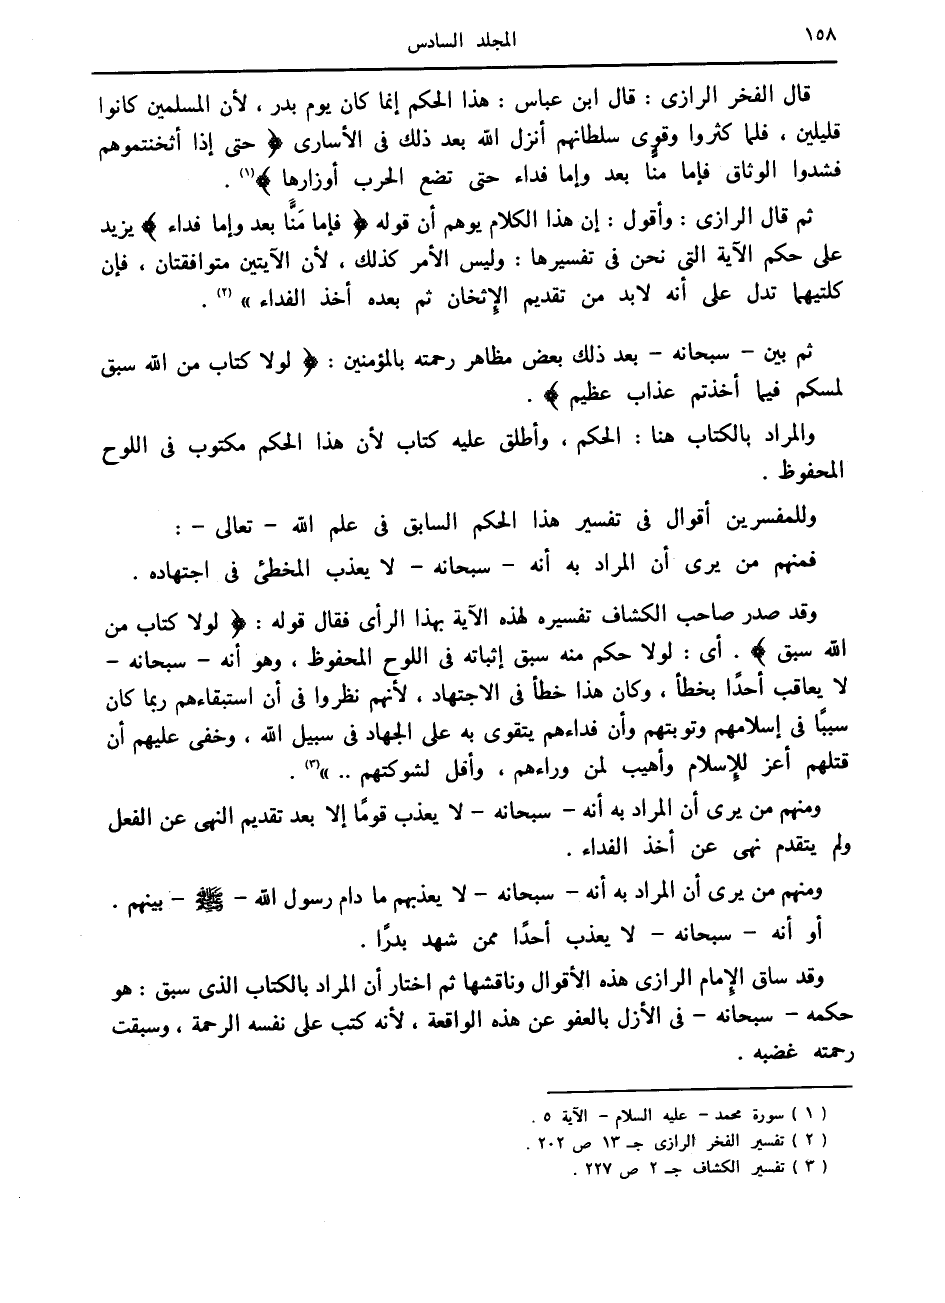 ١٥٨
المجلد السادس
قال الفخر الرازى : قال ابن عباس : هذا الحكم إنما كان يوم بدر ، لأن المسلمين كانوا
قليلين ، فلما كثروا وقوى سلطانهم أنزل الله بعد ذلك فى الأسارى ﴿ حتى إذا أثخنتموهم
فشدوا الوثاق فإما منًّا بعد وإما فداء حتى تضع الحرب أوزارها ﴾(١) .
ثم قال الرازى : وأقول : إن هذا الكلام يوهم أن قوله ﴿ فإما مَنًّا بعد وإما فداء ﴾ يزيد
على حكم الآية التى نحن فى تفسيرها : وليس الأمر كذلك ، لأن الآيتين متوافقتان ، فإن
كلتيهما تدل على أنه لابد من تقديم الإثخان ثم بعده أخذ الفداء » (٢) .
ثم بين – سبحانه – بعد ذلك بعض مظاهر رحمته بالمؤمنين : ﴿ لولا كتاب من الله سبق
لمسكم فيما أخذتم عذاب عظيم ﴾ .
والمراد بالكتاب هنا : الحكم ، وأطلق عليه كتاب لأن هذا الحكم مكتوب فى اللوح
المحفوظ .
وللمفسرين أقوال فى تفسير هذا الحكم السابق فى علم الله – تعالى – :
فمنهم من يرى أن المراد به أنه – سبحانه – لا يعذب المخطئ فى اجتهاده .
وقد صدر صاحب الكشاف تفسيره لهذه الآية بهذا الرأى فقال قوله : ﴿ لولا كتاب من
الله سبق ﴾ . أى : لولا حكم منه سبق إثباته فى اللوح المحفوظ ، وهو أنه – سبحانه –
لا يعاقب أحدًا بخطأ ، وكان هذا خطأ فى الاجتهاد ، لأنهم نظروا فى أن استبقاءهم ربما كان
سببًا فى إسلامهم وتوبتهم وأن فداءهم يتقوى به على الجهاد فى سبيل الله ، وخفى عليهم أن
قتلهم أعز للإسلام وأهيب لمن وراءهم ، وأفل لشوكتهم .. »(٣) .
ومنهم من يرى أن المراد به أنه – سبحانه – لا يعذب قومًا إلا بعد تقديم النهى عن الفعل
ولم يتقدم نهى عن أخذ الفداء .
ومنهم من يرى أن المراد به أنه – سبحانه – لا يعذبهم ما دام رسول الله – ﷺ – بينهم .
أو أنه – سبحانه – لا يعذب أحدًا ممن شهد بدرًا .
وقد ساق الإمام الرازى هذه الأقوال وناقشها ثم اختار أن المراد بالكتاب الذى سبق : هو
حكمه – سبحانه – فى الأزل بالعفو عن هذه الواقعة ، لأنه كتب على نفسه الرحمة ، وسبقت
رحمته غضبه .
( ١ ) سورة محمد – عليه السلام – الآية ٥ .
( ٢ ) تفسير الفخر الرازى جـ ١٣ ص ٢٠٢ .
( ٣ ) تفسير الكشاف جـ ٢ ص ٢٢٧ .